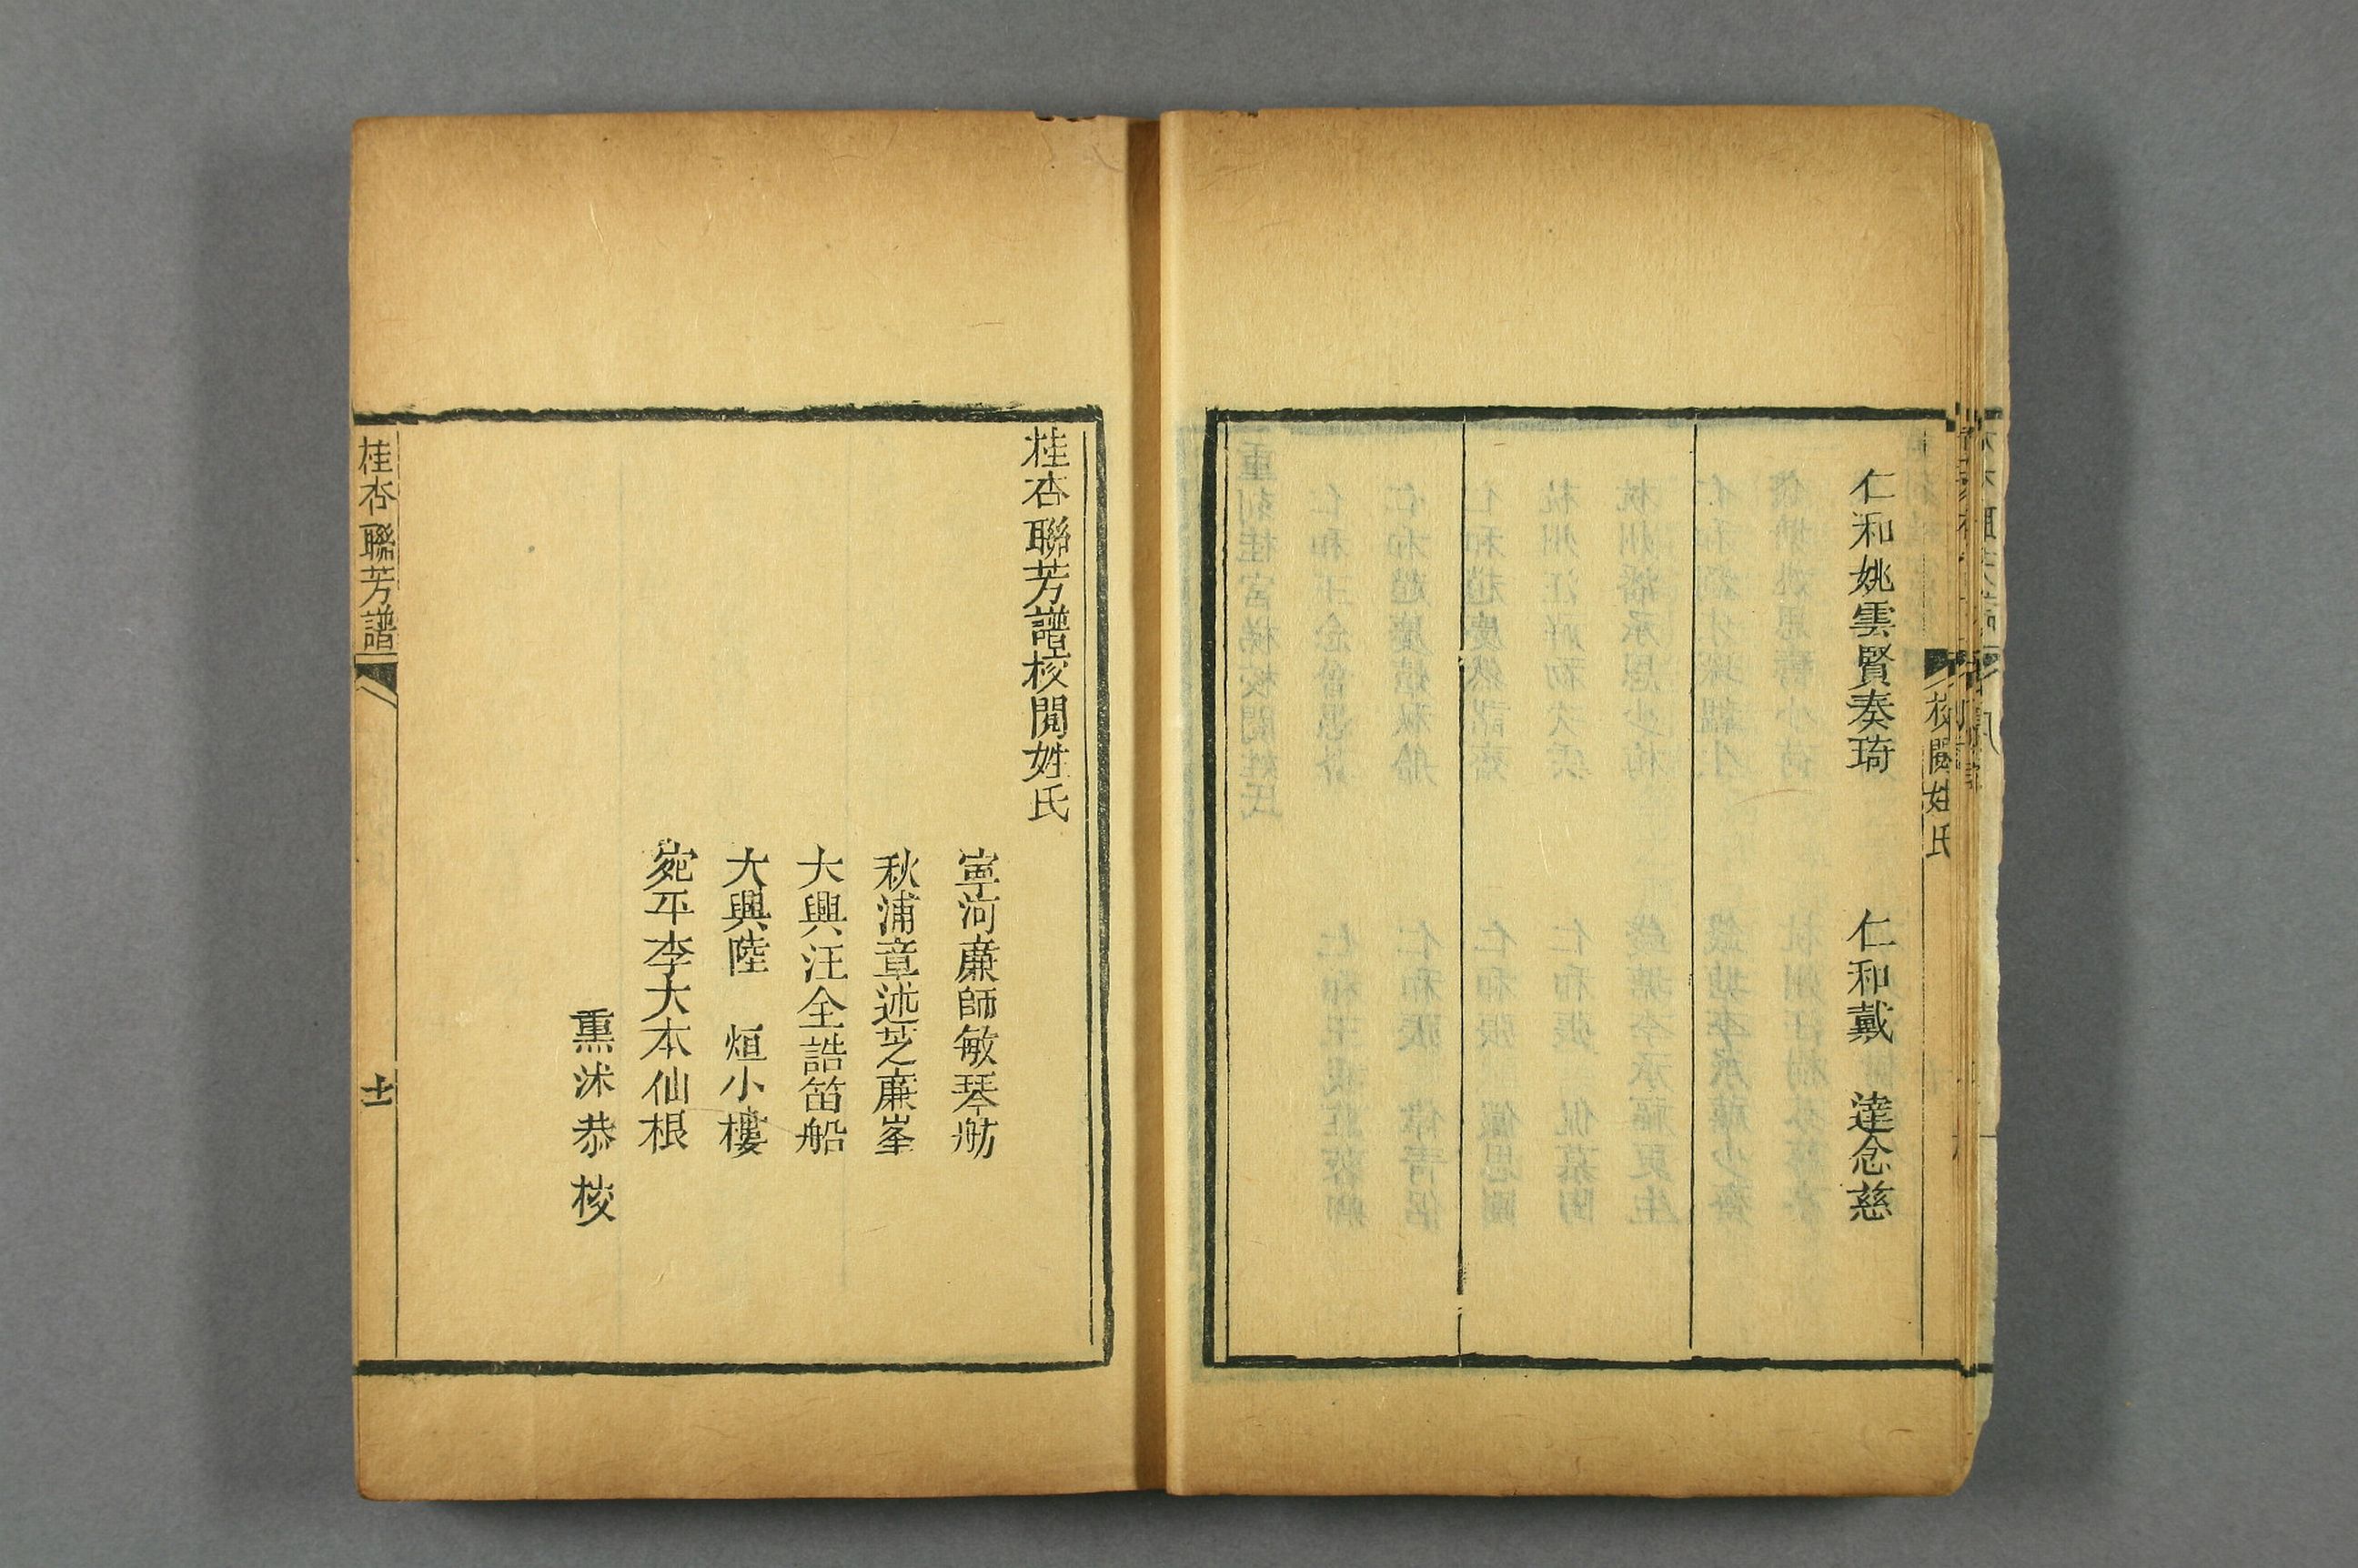 仁和姚雲賢奏琦　仁和戴　達念慈
校閱姓氏
桂杏聯芳譜校閱姓氏
寧河廉師敏琴舫
秋浦章述芝廉峯
大興汪全誥笛船
大興陸　烜小樓
宛平李大本仙根
熏沐恭校
桂杏聯芳譜
十一